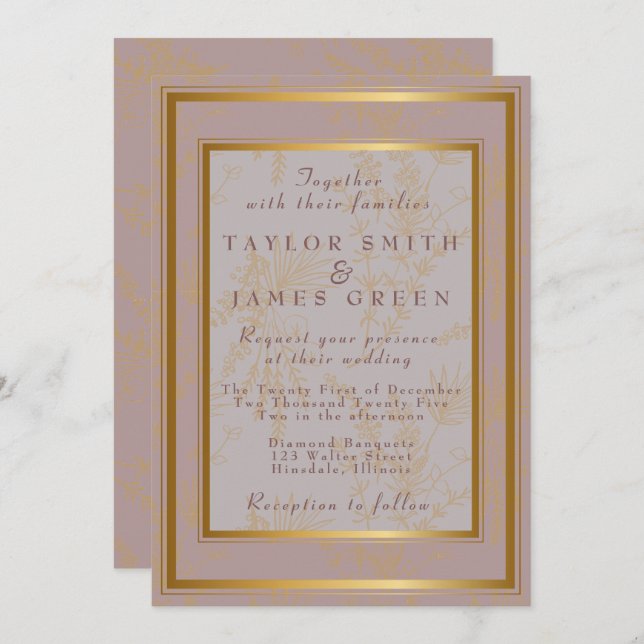 Together
with their families
TAYLOR SMITH
&
JAMES GREEN
Request your presence
at their wedding
The Twenty First of December
Two Thousand Twenty Five
Two in the afternoon
Diamond Banquets
123 Walter Street
Hinsdale, Illinois
Reception to follow